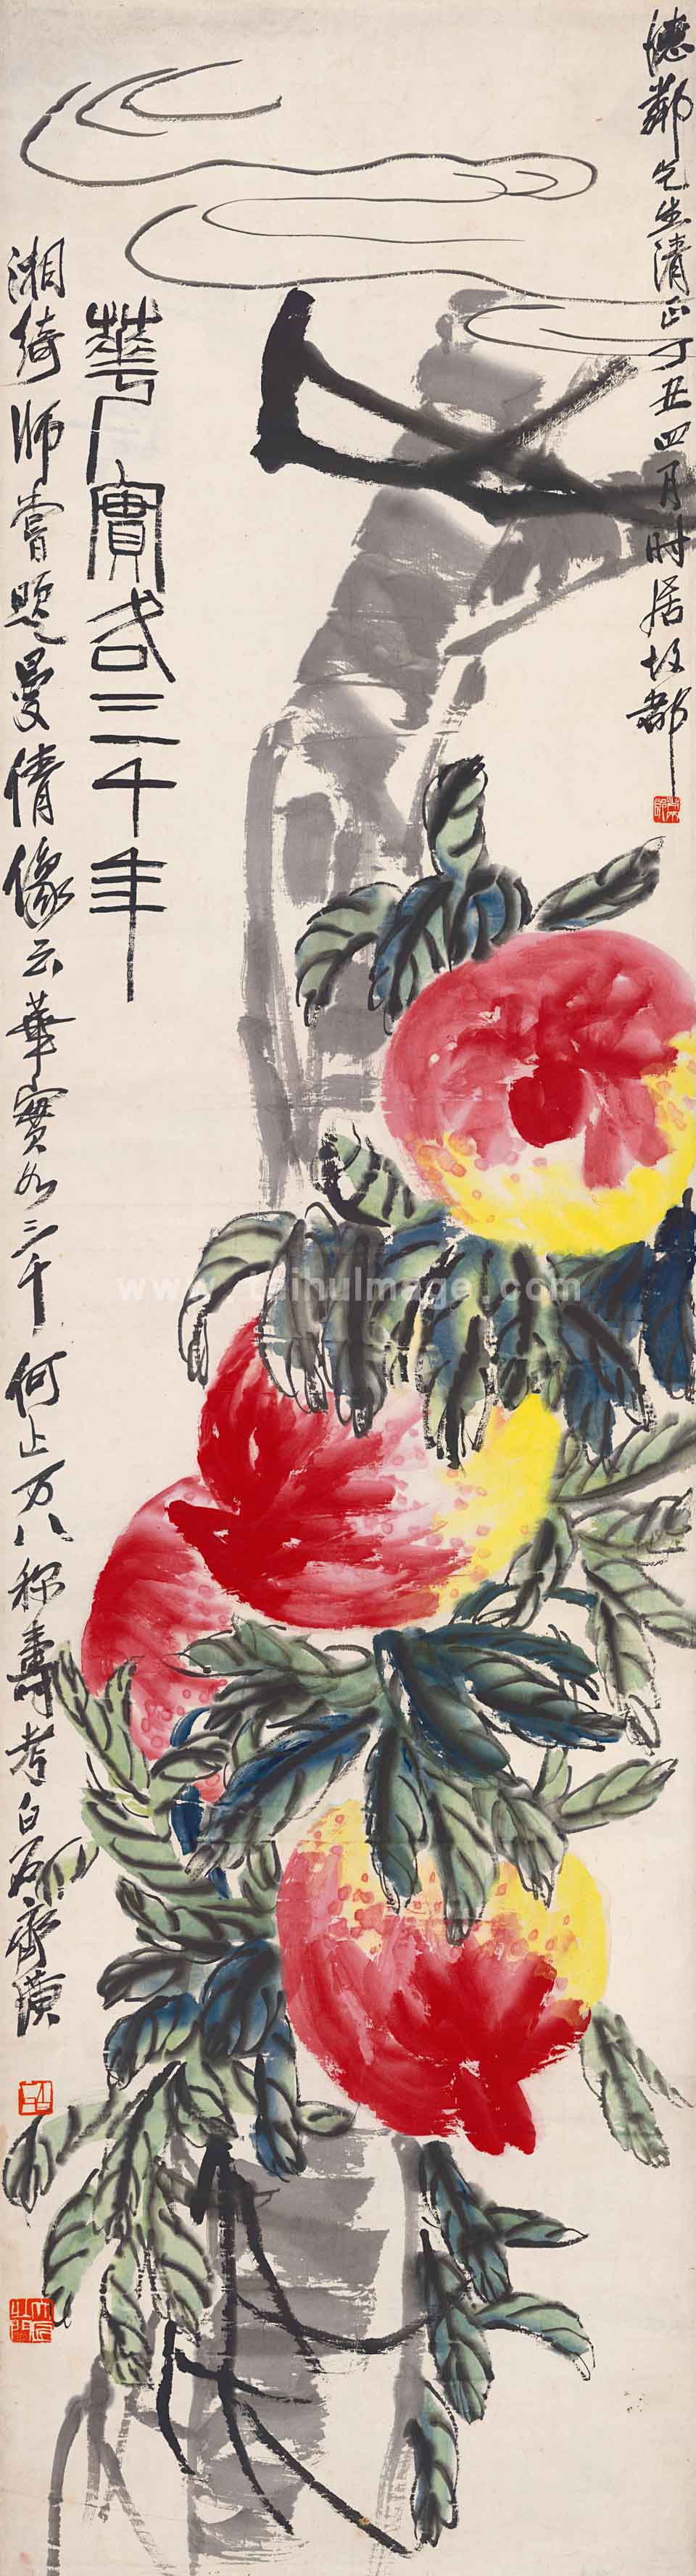 德鄰先生清正丁丑四月时居故都
華實各三千年
湘綺師嘗題曼倩像云華實各三千何止万八称壽考白石齊璜
www.taihuImage.com